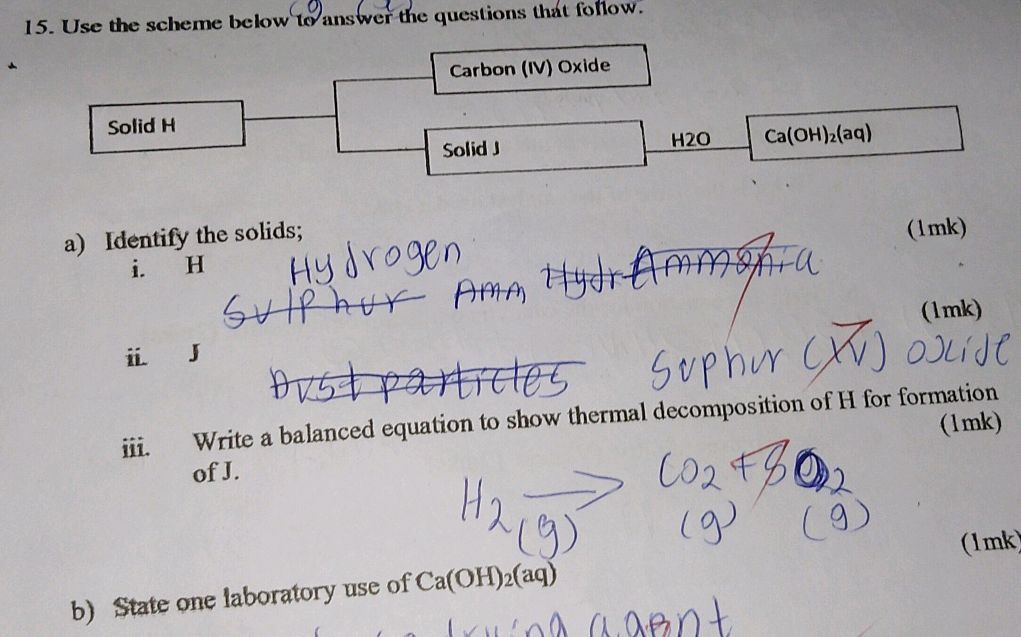 15. Use the scheme below to answer the questions that follow.
Carbon (IV) Oxide
Solid H
Solid J
H2O
Ca(OH)₂(aq)
a) Identify the solids;
(1mk)
i. H
Hydrogen
Sulphur Amm Hydr Ammonia
(1mk)
ii. J
Dust particles Suphur (IV) oxide
iii. Write a balanced equation to show thermal decomposition of H for formation
of J.
(1mk)
H₂(g) → CO₂(g) + SO₂(g)
(1mk)
b) State one laboratory use of Ca(OH)₂(aq)
drying agent